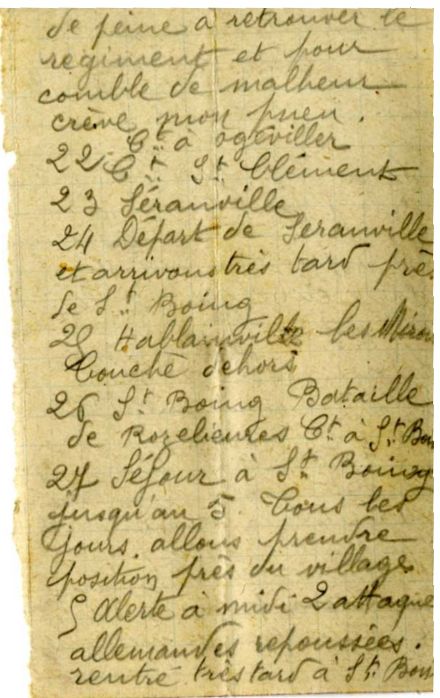 de peine à retrouver le
regiment et pour
comble de malheur
crève mon pneu.
22 Ct à ogéviller
22 Ct St Clément
23 Séranville
24 Départ de Seranville
et arrivons très tard près
de St Boing
25 Hablainville les
Couché dehors
26 St Boing Bataille
de Rozelieures Ct à St Boi
27 Séjour à St Boing
jusqu'au 5. Tous les
jours. allons prendre
position près du village
5 Alerte à midi 2 attaque
allemandes repoussées.
rentré très tard à St Boi